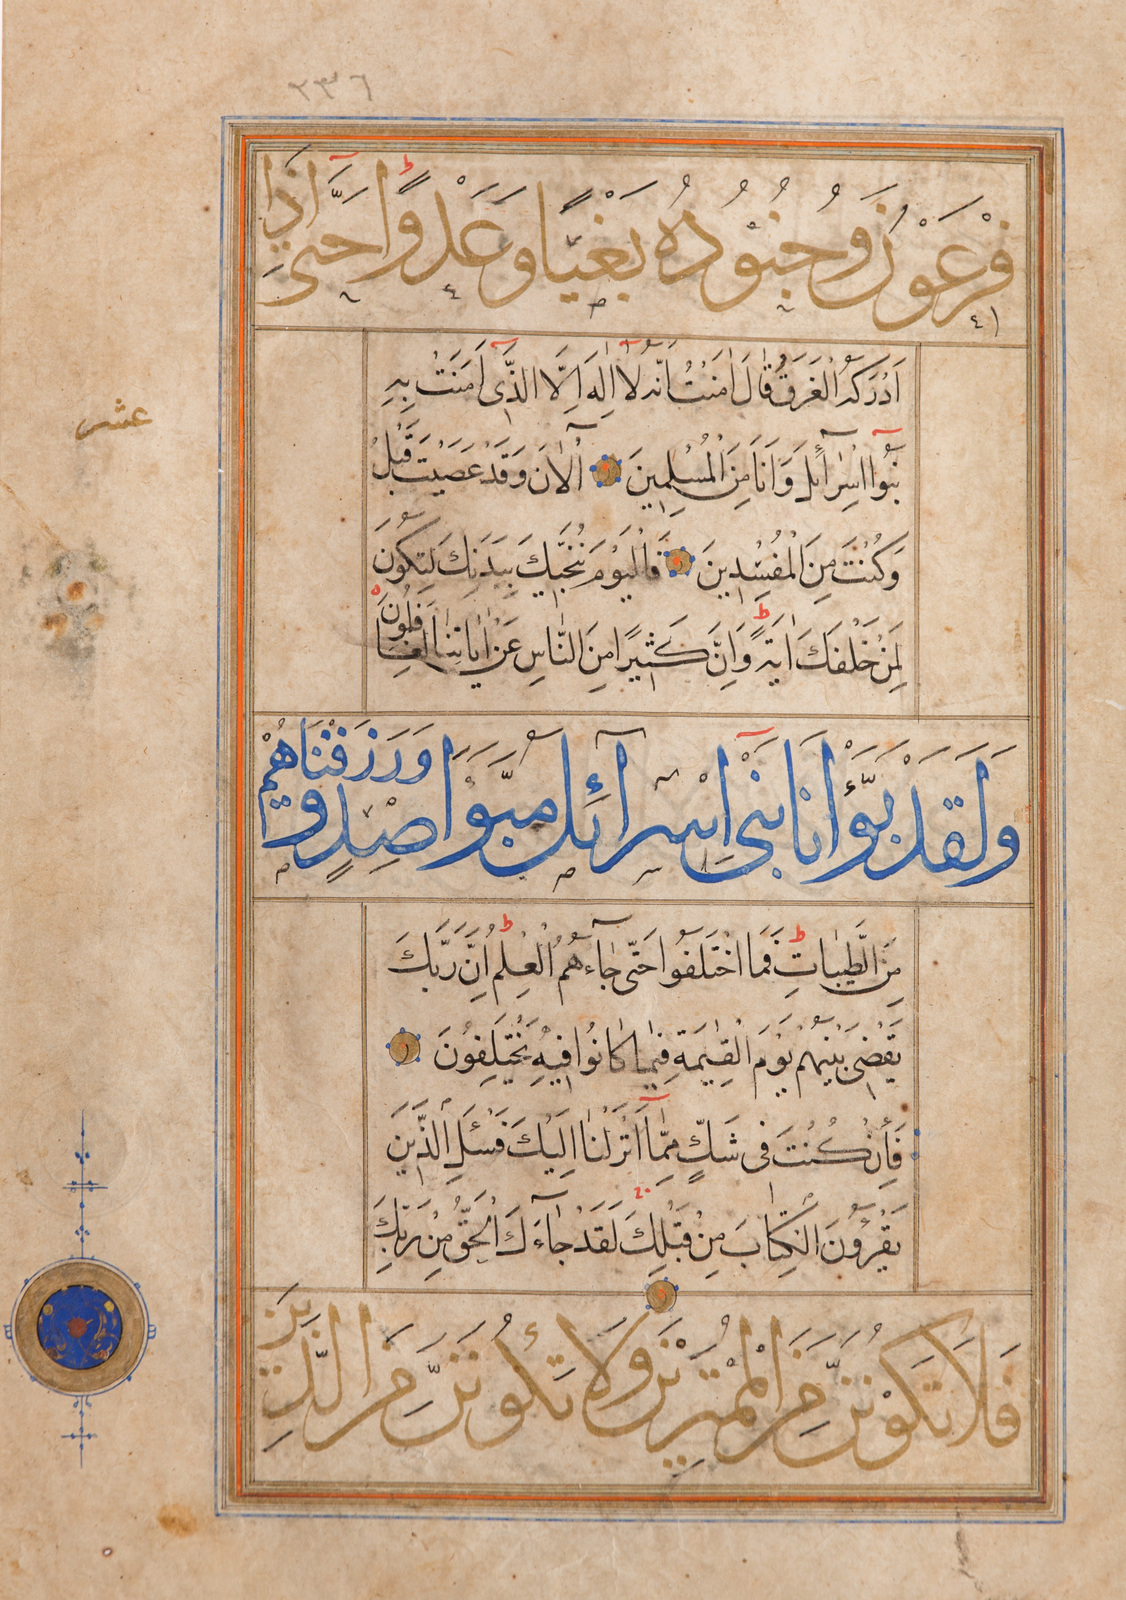 ٣٣٦
فِرْعَوْنُ وَجُنُودُهُ بَغْيًا وَعَدْوًا حَتَّىٰ إِذَا
اَدْرَكَهُ الْغَرَقُ قَالَ اٰمَنْتُ اَنَّهُ لَا اِلٰهَ اِلَّا الَّذِى اٰمَنَتْ بِهِ
بَنُوا اِسْرَائِلَ وَاَنَا مِنَ الْمُسْلِمِينَ آلْاٰنَ وَقَدْ عَصَيْتَ قَبْلُ
وَكُنْتَ مِنَ الْمُفْسِدِينَ فَالْيَوْمَ نُنَجِّيكَ بِبَدَنِكَ لِتَكُونَ
لِمَنْ خَلْفَكَ اٰيَةً وَاِنَّ كَثِيرًا مِنَ النَّاسِ عَنْ اٰيَاتِنَا لَغَافِلُونَ
وَلَقَدْ بَوَّأْنَا بَنِى اِسْرَآئِلَ مُبَوَّا صِدْقٍ وَرَزَقْنَاهُمْ
مِنَ الطَّيِّبَاتِ فَمَا اخْتَلَفُوا حَتّٰى جَاءَهُمُ الْعِلْمُ اِنَّ رَبَّكَ
يَقْضِى بَيْنَهُمْ يَوْمَ الْقِيٰمَةِ فِيمَا كَانُوا فِيهِ يَخْتَلِفُونَ
فَاِنْ كُنْتَ فِى شَكٍّ مِمَّا اَنْزَلْنَا اِلَيْكَ فَسْئَلِ الَّذِينَ
يَقْرَؤُنَ الْكِتَابَ مِنْ قَبْلِكَ لَقَدْ جَاءَكَ الْحَقُّ مِنْ رَبِّكَ
فَلَا تَكُونَنَّ مِنَ الْمُمْتَرِينَ وَلَا تَكُونَنَّ مِنَ الَّذِينَ
عشر